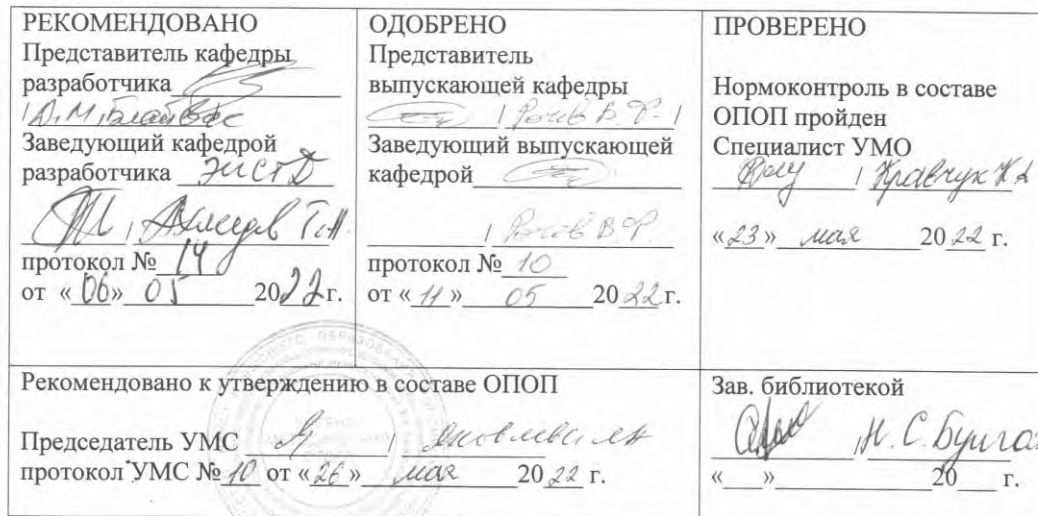 РЕКОМЕНДОВАНО
Представитель кафедры
разработчика
Заведующий кафедрой
разработчика ЭиСТД
протокол № 14
от «06» 05 2022г.
ОДОБРЕНО
Представитель
выпускающей кафедры
В.Ф.
Заведующий выпускающей
кафедрой
В.Ф.
протокол № 10
от «11» 05 2022г.
ПРОВЕРЕНО
Нормоконтроль в составе
ОПОП пройден
Специалист УМО
Кравчук К.
«23» мая 2022 г.
Рекомендовано к утверждению в составе ОПОП
Председатель УМС
протокол УМС № 10 от «26» мая 2022 г.
Зав. библиотекой
Н.С.
«___»___20__ г.